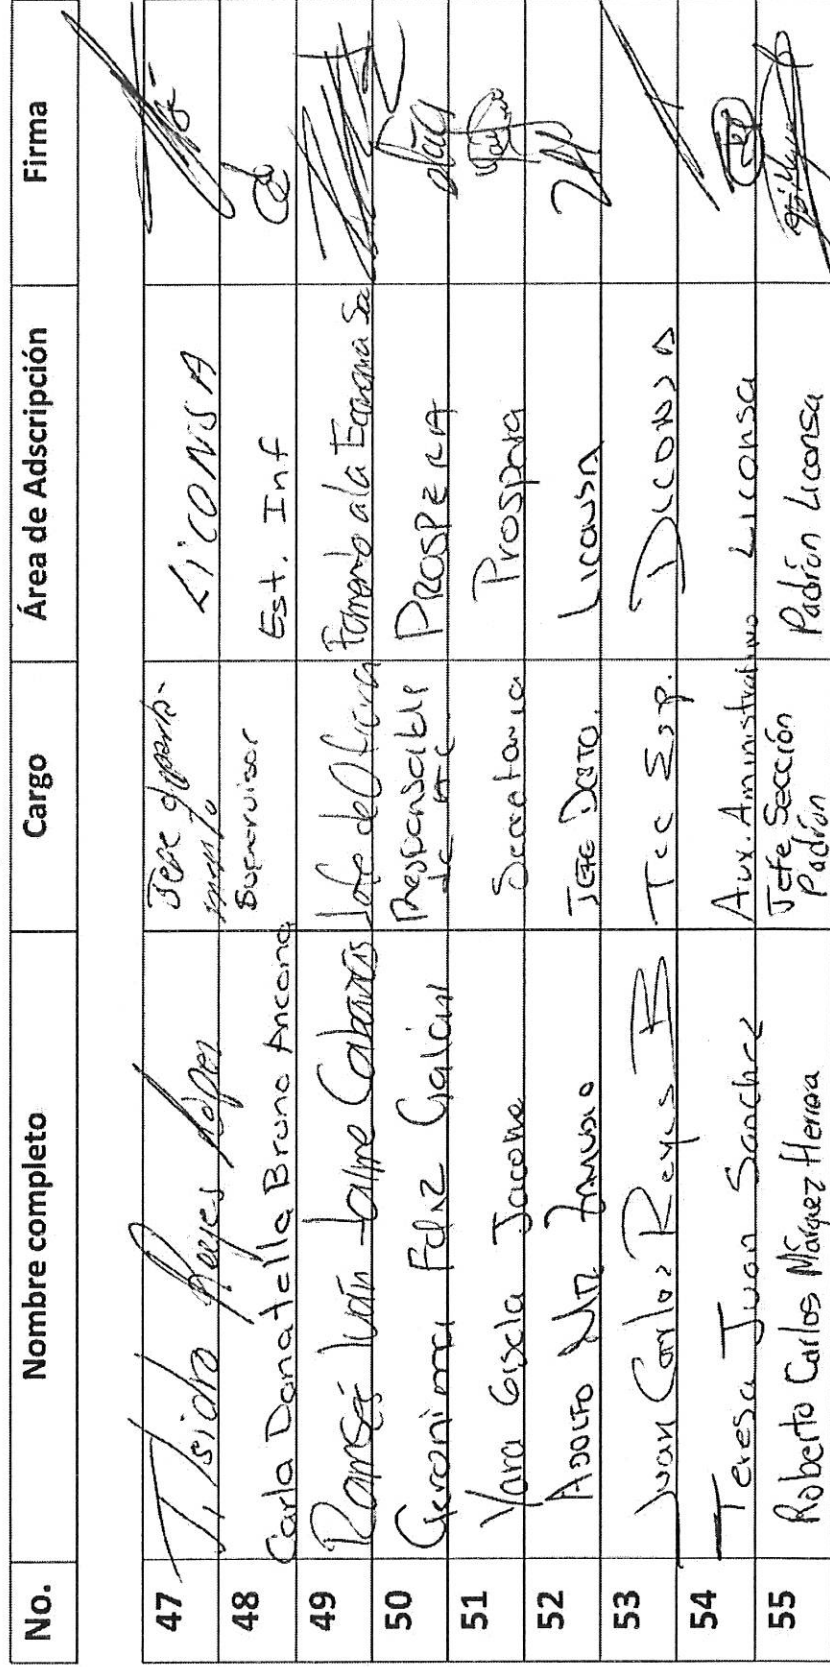 No. Nombre completo Cargo Área de Adscripción Firma
47 J. Isidro Reyes López Jefe departa-
mento LICONSA
48 Carla Donatella Bruno Ancona Supervisor Est. Inf
49 Ramsé Iván Jaime Cabañas Jefe de Oficina Fomento a la Economía So
50 Geronima Feliz Galán Responsable
de PROSPERA
51 Yara Gisela Jacome Secretaria Prospera
52 ADOLFO ZAMUDIO JEFE DEPTO. LICONSA
53 Juan Carlos Reyes B Tec Esp. DICONSA
54 Teresa Juan Sanchez Aux. Aministrativo Liconsa
55 Roberto Carlos Márquez Herrera Jefe Sección
Padrón Padrón Liconsa